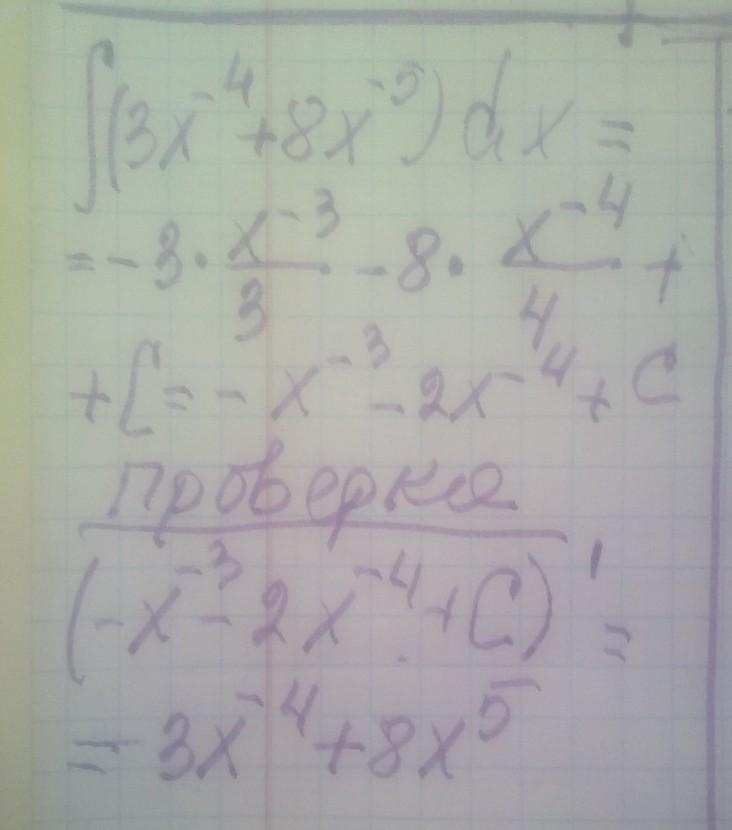 ∫(3x⁻⁴+8x⁻⁵)dx=
=-3·x⁻³/3-8·x⁻⁴/4+
+C=-x⁻³-2x⁻⁴+C
проверка
(-x⁻³-2x⁻⁴+C)'=
=3x⁻⁴+8x⁵